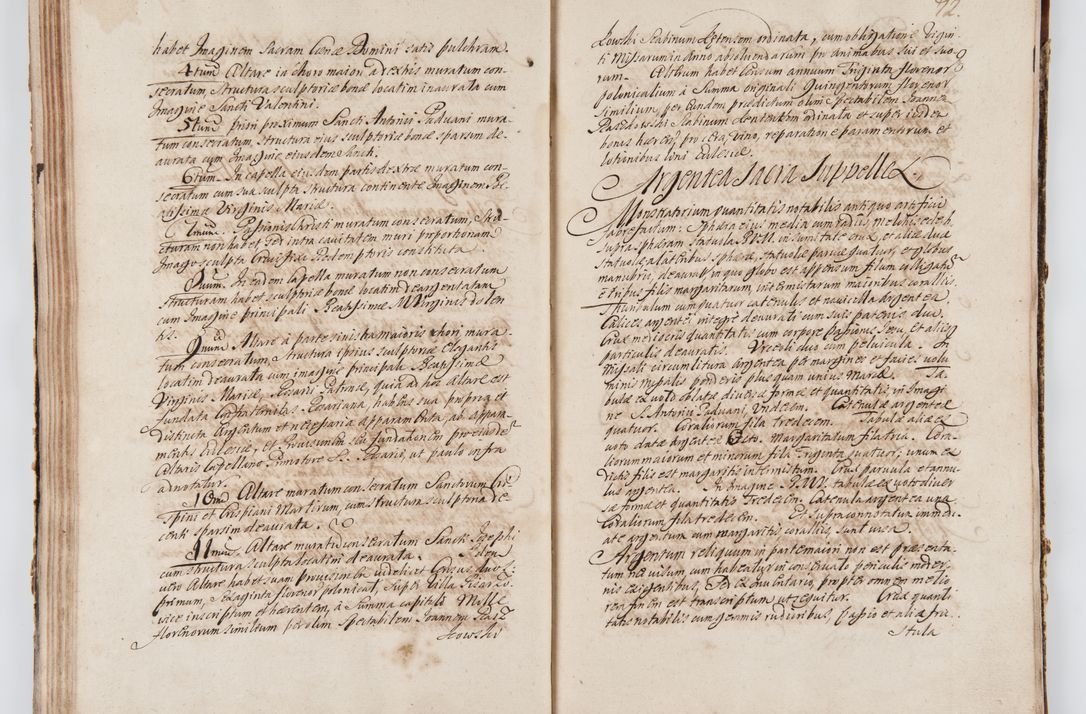 habet Imaginem Sacram Cænæ Domini satis pulchram.
4tum Altare in choro maiori a dextris muratum con-
secratum, Structura sculptoriæ bonæ locatim inaurata cum
Imagine Sancti Valentini.
5tum priori proximum Sancti Antonii Paduani mura-
tum consecratum, structura eius sculptoriæ bonæ, sparsim de-
aurata cum Imagine eiusdem Sancti.
6tum. In capella eiusdem partis dextræ muratum con-
secratum cum sua sculpta structura continente Imaginem Be-
atissimæ Virginis Mariæ.
7mum. Passionis Christi muratum consecratum, Stru-
cturam non habet sed intra cavitatem muri proportionam
Imago sculpta Crucifixi Redemptoris constituta
8vum. In eadem Capella muratum non consecratum
structuram habet sculptoriæ bonæ locatim deargentatam
cum Imagine principali Beatissimæ M Virginis dolen
tis.
9num Altare a parte sinistra maioris chori mura-
tum consecratum, structura ipsius sculptoriæ elegantis
locatim deaurata cum imagine principali Beatissimæ
Virginis Mariæ, Rosarii Patronæ, quia ad hoc altare est
fundata Confraternitas Rosariana, habens sua propria et
distincta Argentum et necessaria apparamenta, ab appara-
mentis Ecclesiæ, et Provisionem seu fundationem pro eiusdem
Altaris Capellano, Promotore SS. Rosarii, ut paulo infra
adnotatur.
10mum Altare muratum consecratum Sanctorum Cri-
spini et Crispiani Martirum, cum structura sculptoria re-
centi sparsim deaurata.
11mum. Altare muratum consecratum Sancti Josephi
cum structura sculpta locatim deaurata. Idem
vero Altare habet suam provisionem videlicet Census duos:
primum, Sexaginta florenorum polonicalium, super Villa Pisarzo-
vice inscriptum et hærentem, a Summa capitali Mille
florenorum similium per olim Spectabilem Joannem Staz
kowski
92.
kowski Scabinum Leptensem ordinata, cum obligatione Vigin-
ti Missarum in Anno absolvendarum pro animabus sui et suo-
rum. Alterum habet Censum annuum Triginta florenorum
polonicalium a Summa originali Quingentorum florenorum
similium, per Eundem prædictum olim Spectabilem Joannem
Stazkowski Scabinum Kentensem ordinata et super iisdem
bonis hærens, pro cera, vino, reparatione paramentorum et
lotionibus loni Ecclesiæ.
Argentea Sacra Suppellex
Monstratorium quantitatis notabilis antiquo artificio
fabrefactum: Sphæra eius media cum radiis, melchisedech
supra sphæram Statuola BVM. in sumitate crux, et aliæ duæ
Statuolæ a lateribus sphæræ, statuolæ parvæ quatuor, et globus
manubrii, deaurati in quo globo est appensum filum colligatum
e tribus filis margaritarum, intermixtarum maioribus corallis.
Thuribulum cum quatuor catenulis et navicella Argentea.
Calices argentei integre deaurati cum suis patenis duo.
Crux mediocris quantitatis cum corpore Passionis Jesu, et aliis
particulis deauratis. Urceoli duo cum pelvicula. In
Missali circumlitura Argentea per margines et facies volu
minis Missalis ponderis plus quam unius Marcæ. Ta-
bulæ ex voto oblatæ diversæ formæ et quantitatis, in Imagi
ne S. Antonii Paduani, Undecim. Catenulæ argenteæ
quatuor. Corallorum fila tredecim. Tabulæ aliæ ex
voto datæ Argenteæ Octo. Margaritarum fila tria. Cora-
liorum maiorum et minorum fila Triginta quatuor, unum ex
dictis filis est margaritis intermixtum. Crux parvula et annu-
lus argentea. In Imagine BMV. tabulæ ex voto diver
sæ formæ et quantitatis Tredecim. Catenula argentea una.
Coraliorum fila tredecim. Ex supra connotatis immedi-
ate argentum cum margaritis corallis, sunt visa.
Argentum reliquum in parte maiori non est præsenta-
tum nec visum cum habeatur in conservato periculis moder-
nis exigentibus, sed ex inventario, propter omnem melio
rem finem est transcriptum ut sequitur. Crux quanti-
tatis notabilis cum gemmis rudioribus, Cassio et aliæ fra-
stula